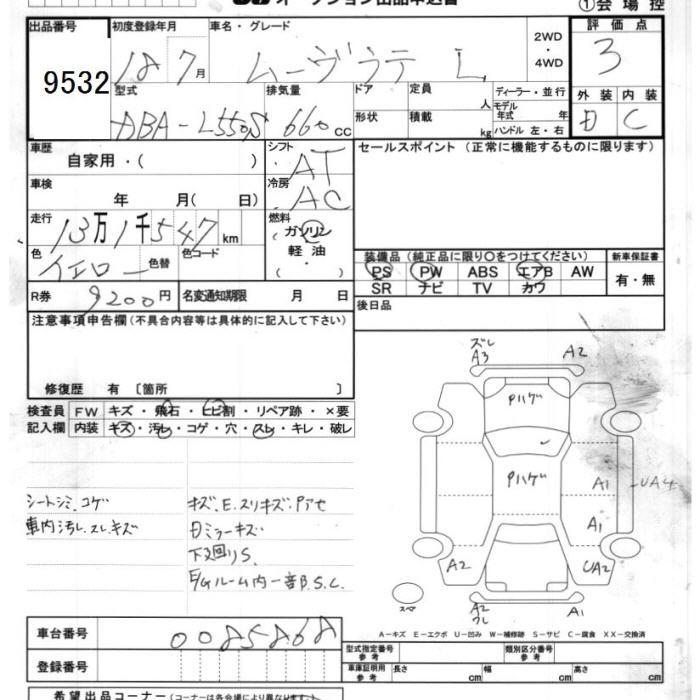 オークション出品申込書
①会場控
出品番号
9532
初度登録年月
18 7月
車名・グレード
ムーヴラテ L
2WD
・
4WD
評価点
3
型式
DBA-L550S
排気量
660cc
ドア
形状
定員
人
積載
kg
ディーラー・並行
モデル年式 年
ハンドル 左・右
外装 内装
D C
車歴
自家用・( )
シフト
AT
セールスポイント (正常に機能するものに限ります)
車検
年 月( 日)
冷房
AC
走行
13万1千547km
燃料
ガソリン
軽油
( ・ )
色
イエロー
色替
色コード
装備品(純正品に限り〇をつけてください)
新車保証書
PS PW ABS エアB AW
SR ナビ TV カワ
有・無
R券
9200円
名変通知期限 月 日
後日品
注意事項申告欄(不具合内容等は具体的に記入して下さい)
修復歴 有 〔箇所 〕
検査員
記入欄
FW キズ・飛石・ヒビ割・リペア跡・×要
内装 キズ・汚レ・コゲ・穴・スレ・キレ・破レ
シートシミ、コゲ
車内汚レ、スレ、キズ
キズ、E、スリキズ、Pアセ
Dミラーキズ
下回りS
E/Gルーム内一部B.S.C.
ズレ
A3
A2
Pハゲ
Pハゲ
A1
UA4
A1
A2
UA2
スペア
A2
ワレ
A1
A-キズ E-エクボ U-凹み W-補修跡 S-サビ C-腐食 XX-交換済
車台番号
0085868
登録番号
型式指定番号
参考
類別区分番号
参考
車庫証明用
参考
長さ cm
幅 cm
高さ cm
希望出品コーナー(コーナーは各会場により異なります)